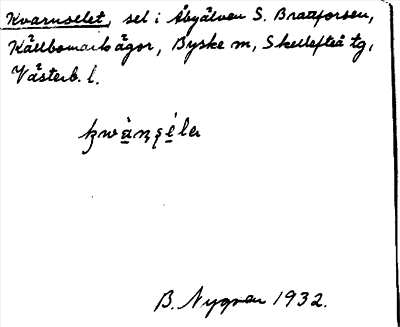 Kvarnselet, sel i Åbyälven S. Brattforsen,
Källbomarks ägor, Byske sn, Skellefteå tg,
Västerb. l.
ꞣwànsélə
B. Nygren 1932.